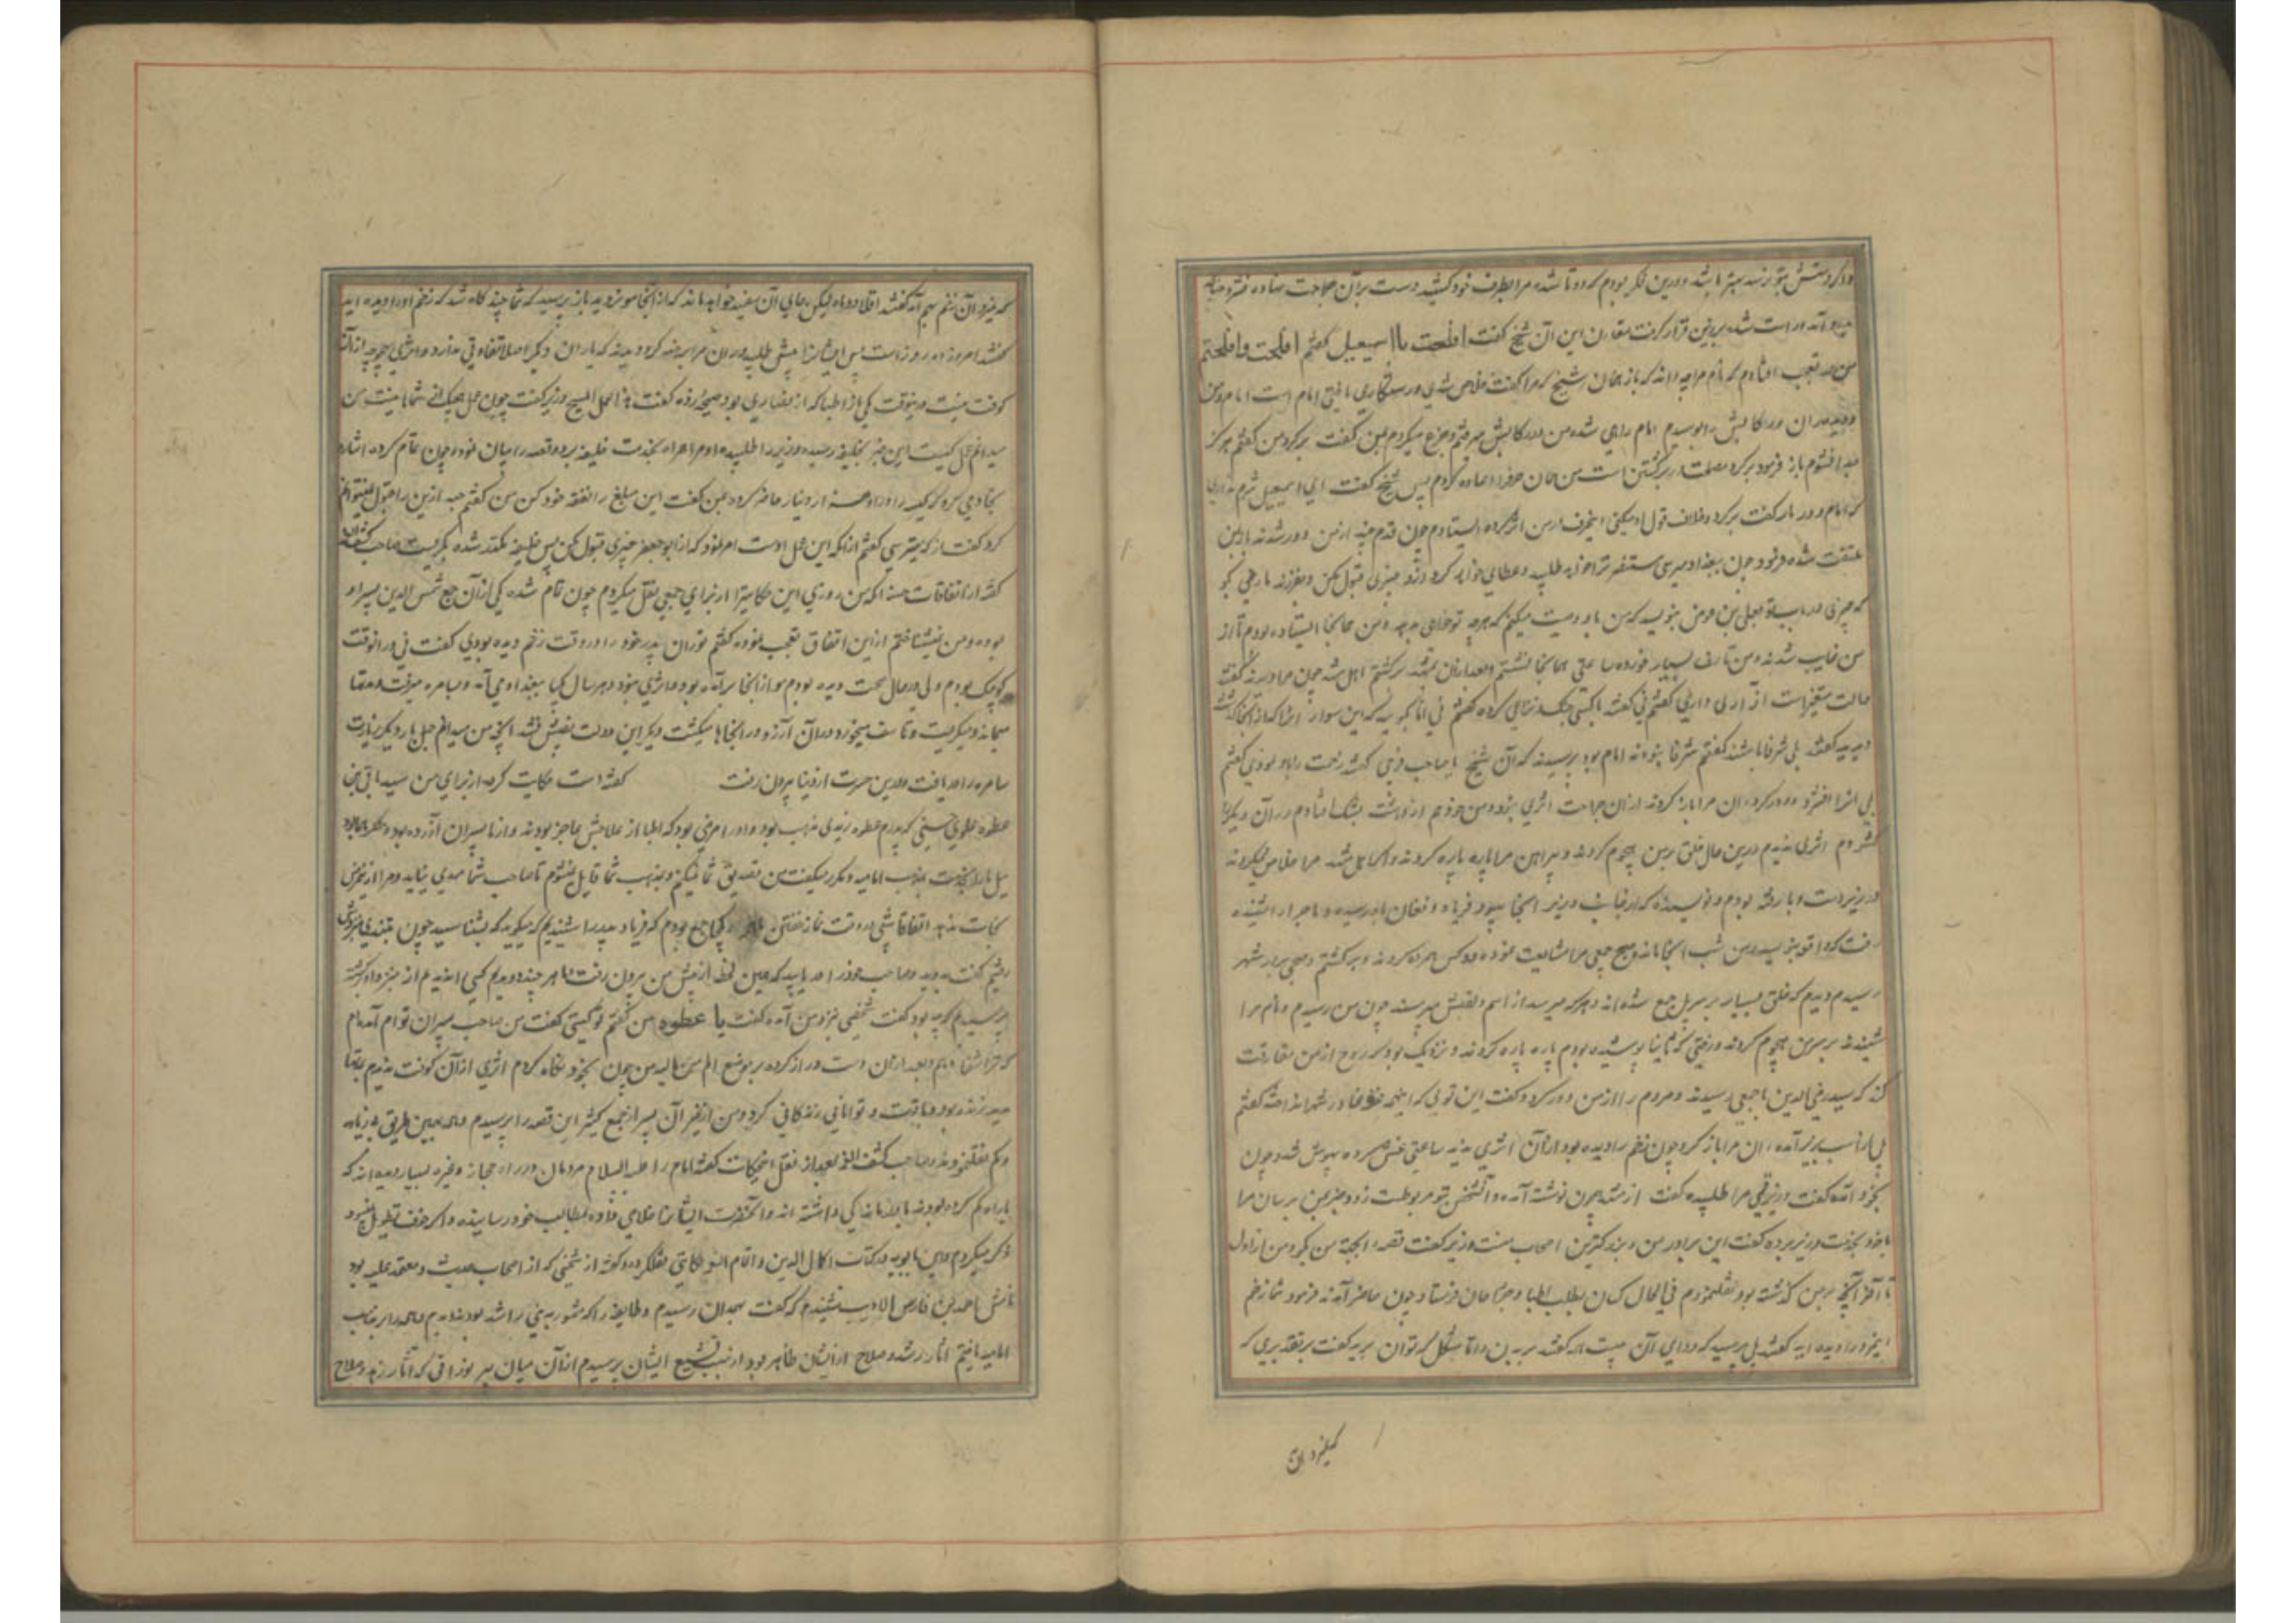 و اگر دستش بتو رسد بهتر باشد و درین فکر بودم که دو تا شده مرا بطرف خود کشید و دست بران جراحت نهاده فشرد چنانچه
بدرد آمد و راست شده بر زمین قرار گرفت مقارن این آن شیخ گفت افلحت یا اسمعیل گفتم افلحت و افلحتم
من در تعجب افتادم که نام مرا چه داند که باز همان شیخ که مرا گفت خلاص شدی و رستگاری یافتی امام است امام و من
دویدم ران و رکابش را بوسیدم امام راهی شد و من در رکابش میرفتم و جزع میکردم بمن گفت برگرد من گفتم هرگز
جدا نشوم باز فرمود برگرد مصلحت در برگشتن است من همان حرف را اعاده کردم پس شیخ گفت ای اسمعیل شرم نداری
که امام دو بار گفت برگرد و خلاف قول او میکنی این حرف در من اثر کرده ایستادم چون قدم چند از من دور شدند باز بمن
ملتفت شده فرمود چون ببغداد میرسی مستنصر ترا خواهد طلبید و عطایی خواهد کرد و از او چیزی قبول مکن و بفرزند ما رضی بگو
که چیزی در باب تو بعلی بن عوض بنویسد که من باو وصیت میکنم که هر چه تو خواهی بدهد و من همانجا ایستاده بودم تا از
من غایب شدند و من تاسف بسیار خورده ساعتی همانجا نشستم و بعد از ان بمشهد برگشتم اهل مشهد چون مرا دیدند گفتند
حالت متغیر است آزاری داری گفتم نی گفتند با کسی جنگ و نزاعی کرده گفتم نی اما بگویید که این سواران را که از اینجا گذشتند
دیدید گفتند بلی شرفا باشند گفتم شرفا نبودند امام بود پرسیدند که آن شیخ یا صاحب فرجی گفتند زخمت را باو نمودی گفتم
بلی انرا افشرد و درد کرد ران مرا باز کردند از ان جراحت اثری نبود و من خود هم از دهشت بشک افتادم و ران دیگر را
گشودم اثری ندیدم درین حال خلق بر من هجوم کردند و پیراهن مرا پاره پاره کردند و اگر اهل مشهد مرا خلاص نمیکردند
در زیر دست و پا رفته بودم و نویسنده که از جانب وزیر انجا میبود فریاد و فغان باو رسیده و ماجرا را شنیده
رفت که واقعه بنویسد و من شب انجا مانده صبح جمعی مرا مشایعت نموده دو کس همراه کردند و برگشتم و صبح بر در شهر
رسیدم دیدم که خلق بسیار بر سر پل جمع شده اند و هر که میرسد از اسم و لقبش میپرسند چون من رسیدم و نام مرا
شنیدند بر سر من هجوم کردند و رختی که ثانیا پوشیده بودم پاره پاره کردند و نزدیک بود که روح از من مفارقت
کند که سید رضی الدین با جمعی رسیدند و مردم را از من دور کرد و گفت این تویی که اینهمه غوغا در شهر انداخته گفتم
بلی از اسب بزیر آمده ران مرا باز کرد چون زخم را دیده بود از آن اثری ندید ساعتی غش کرده بیهوش شد و چون
بخود آمد گفت وزیر قمی مرا طلبیده گفت از مشهد چون نوشته آمده و آنشخص بتو مربوطست زود خبر بمن برسان مرا
با خود بخدمت وزیر برده گفت این برادر من و بزرگترین اصحاب منست وزیر گفت قصه را بجهت من بگو و من از اول
تا آخر آنچه بر من گذشته بود نقل نمودم فی الحال کسان بطلب اطبا و جراحان فرستاد چون حاضر آمدند فرمود شما زخم
اینمرد را دیده اید گفتند بلی پرسید که دوای آن چیست همه گفتند بریدن و اما مشکل که توان برید گفت بر تقدیری که
بمیرد آن زخم بهم آمد گفتند اقلا دو ماه لیکن جای آن سفید خواهد ماند که از انجا مو نروید باز پرسید که شما چند گاه شد که زخم او را دیده اید
گفتند امروز ده روز است پس ایشان را پیش طلبید و ران مرا برهنه کرد دیدند که با ران دیگر اصلا تفاوتی ندارد و اثری بهیچوجه از آن
کوفت نیست درینوقت یکی از اطبا که از نصاری بود صیحه زده گفت هذا عمل المسیح وزیر گفت چون عمل هیچیک از شما نیست من
میدانم عمل کیست این خبر بخلیفه رسیده وزیر را طلبیده او مرا همراه بخدمت خلیفه برد و قصه را بیان نمود و چون تمام کردم اشاره
بخادمی کرد که کیسه را در او هزار دینار حاضر کرد بمن گفت این مبلغ را نفقه خود کن من گفتم حبه ازین را قبول نمیتوانم
کرد گفت از که میترسی گفتم از آنکه این عمل اوست امر نمود که از ابو جعفر چیزی قبول مکن پس خلیفه مکدر شده بگریست صاحب کشف الغمه
گفته از اتفاقات حسنه اینکه من روزی این حکایترا از برای جمعی نقل میکردم چون تمام شد یکی از آن جمع شمس الدین پسر او
بوده و من نمیشناختم ازین اتفاق تعجب نموده گفتم تو ران پدر خود را در وقت زخم دیده بودی گفت نی در انوقت
کوچک بودم ولی در حال صحت دیده بودم مو از انجا برآمده بود و اثری نبود و هر سال یکبار ببغداد می آمد و بسامره میرفت و مدتها
میماند و میگریست و تاسف میخورد و در آن آرزو در انجاها میگشت و دیگر این دولت نصیبش نشد آنچه من میدانم چهل بار دیگر زیارت
سامره را دریافت و درین حسرت از دنیا بیرون رفت گفته است حکایت کرد از برای من سید باقی بن
عطوه علوی حسینی که پدرم عطوه زیدی مذهب بود و او را مرضی بود که اطبا از علاجش عاجز بودند و از ما پسران آزرده بود و منکر بود
میل ما را بمذهب امامیه و مکرر میگفت من تصدیق شما نمیکنم و بمذهب شما قایل نمیشوم تا صاحب شما مهدی نیاید و مرا ازین مرض
نجات ندهد اتفاقا شبی در وقت نماز خفتن یکجا جمع بودم که فریاد پدر را شنیدیم که میگوید که بشتابید چون بتندی بنزدش
رفتیم گفت بدوید و صاحب خود را دریابید که همین لحظه از پیش من بیرون رفت ما هر چند دویدیم کسی را ندیدیم از نزد او برگشته
پرسیدیم که چه بود گفت شخصی بنزد من آمده گفت یا عطوه من گفتم تو کیستی گفت من صاحب پسران توام آمده ام
که ترا شفا دهم و بعد از ان دست دراز کرده بر موضع الم من مالید من چون بخود نگاه کردم اثری از آن کوفت ندیدم مدتها
مدید زنده بود و با قوت و توانایی زندگانی کرد و من از غیر آن پسر از جمع کثیر این قصه را پرسیدم همه بهمین طریق بی زیاده
و کم نقل نمودند و صاحب کشف الغمه بعد از نقل این حکایت گفته امام را علیه السلام مردمان در راه حجاز و غیره بسیار دیده اند که
یا راه گم کرده بودند یا درماندگی داشته اند و آنحضرت ایشانرا خلاصی داده و بمطالب خود رسانیده و اگر خوف تطویل نبود
ذکر میکردم و ابن بابویه در کتاب اکمال الدین و اتمام النعمه حکایتی نقل کرده و گفته از شیخی که از اصحاب حدیث و معتمد علیه بود
نامش احمد بن فارس الادیب شنیدم که گفت بهمدان رسیدم و طایفه را که مشهور به بنی راشد بودند دیدم و همه را بر مذهب
امامیه یافتم آثار رشد و صلاح از ایشان ظاهر بود از سبب تشیع ایشان پرسیدم از آن میان پیر نورانی که آثار زهد و صلاح
بمیرد آن